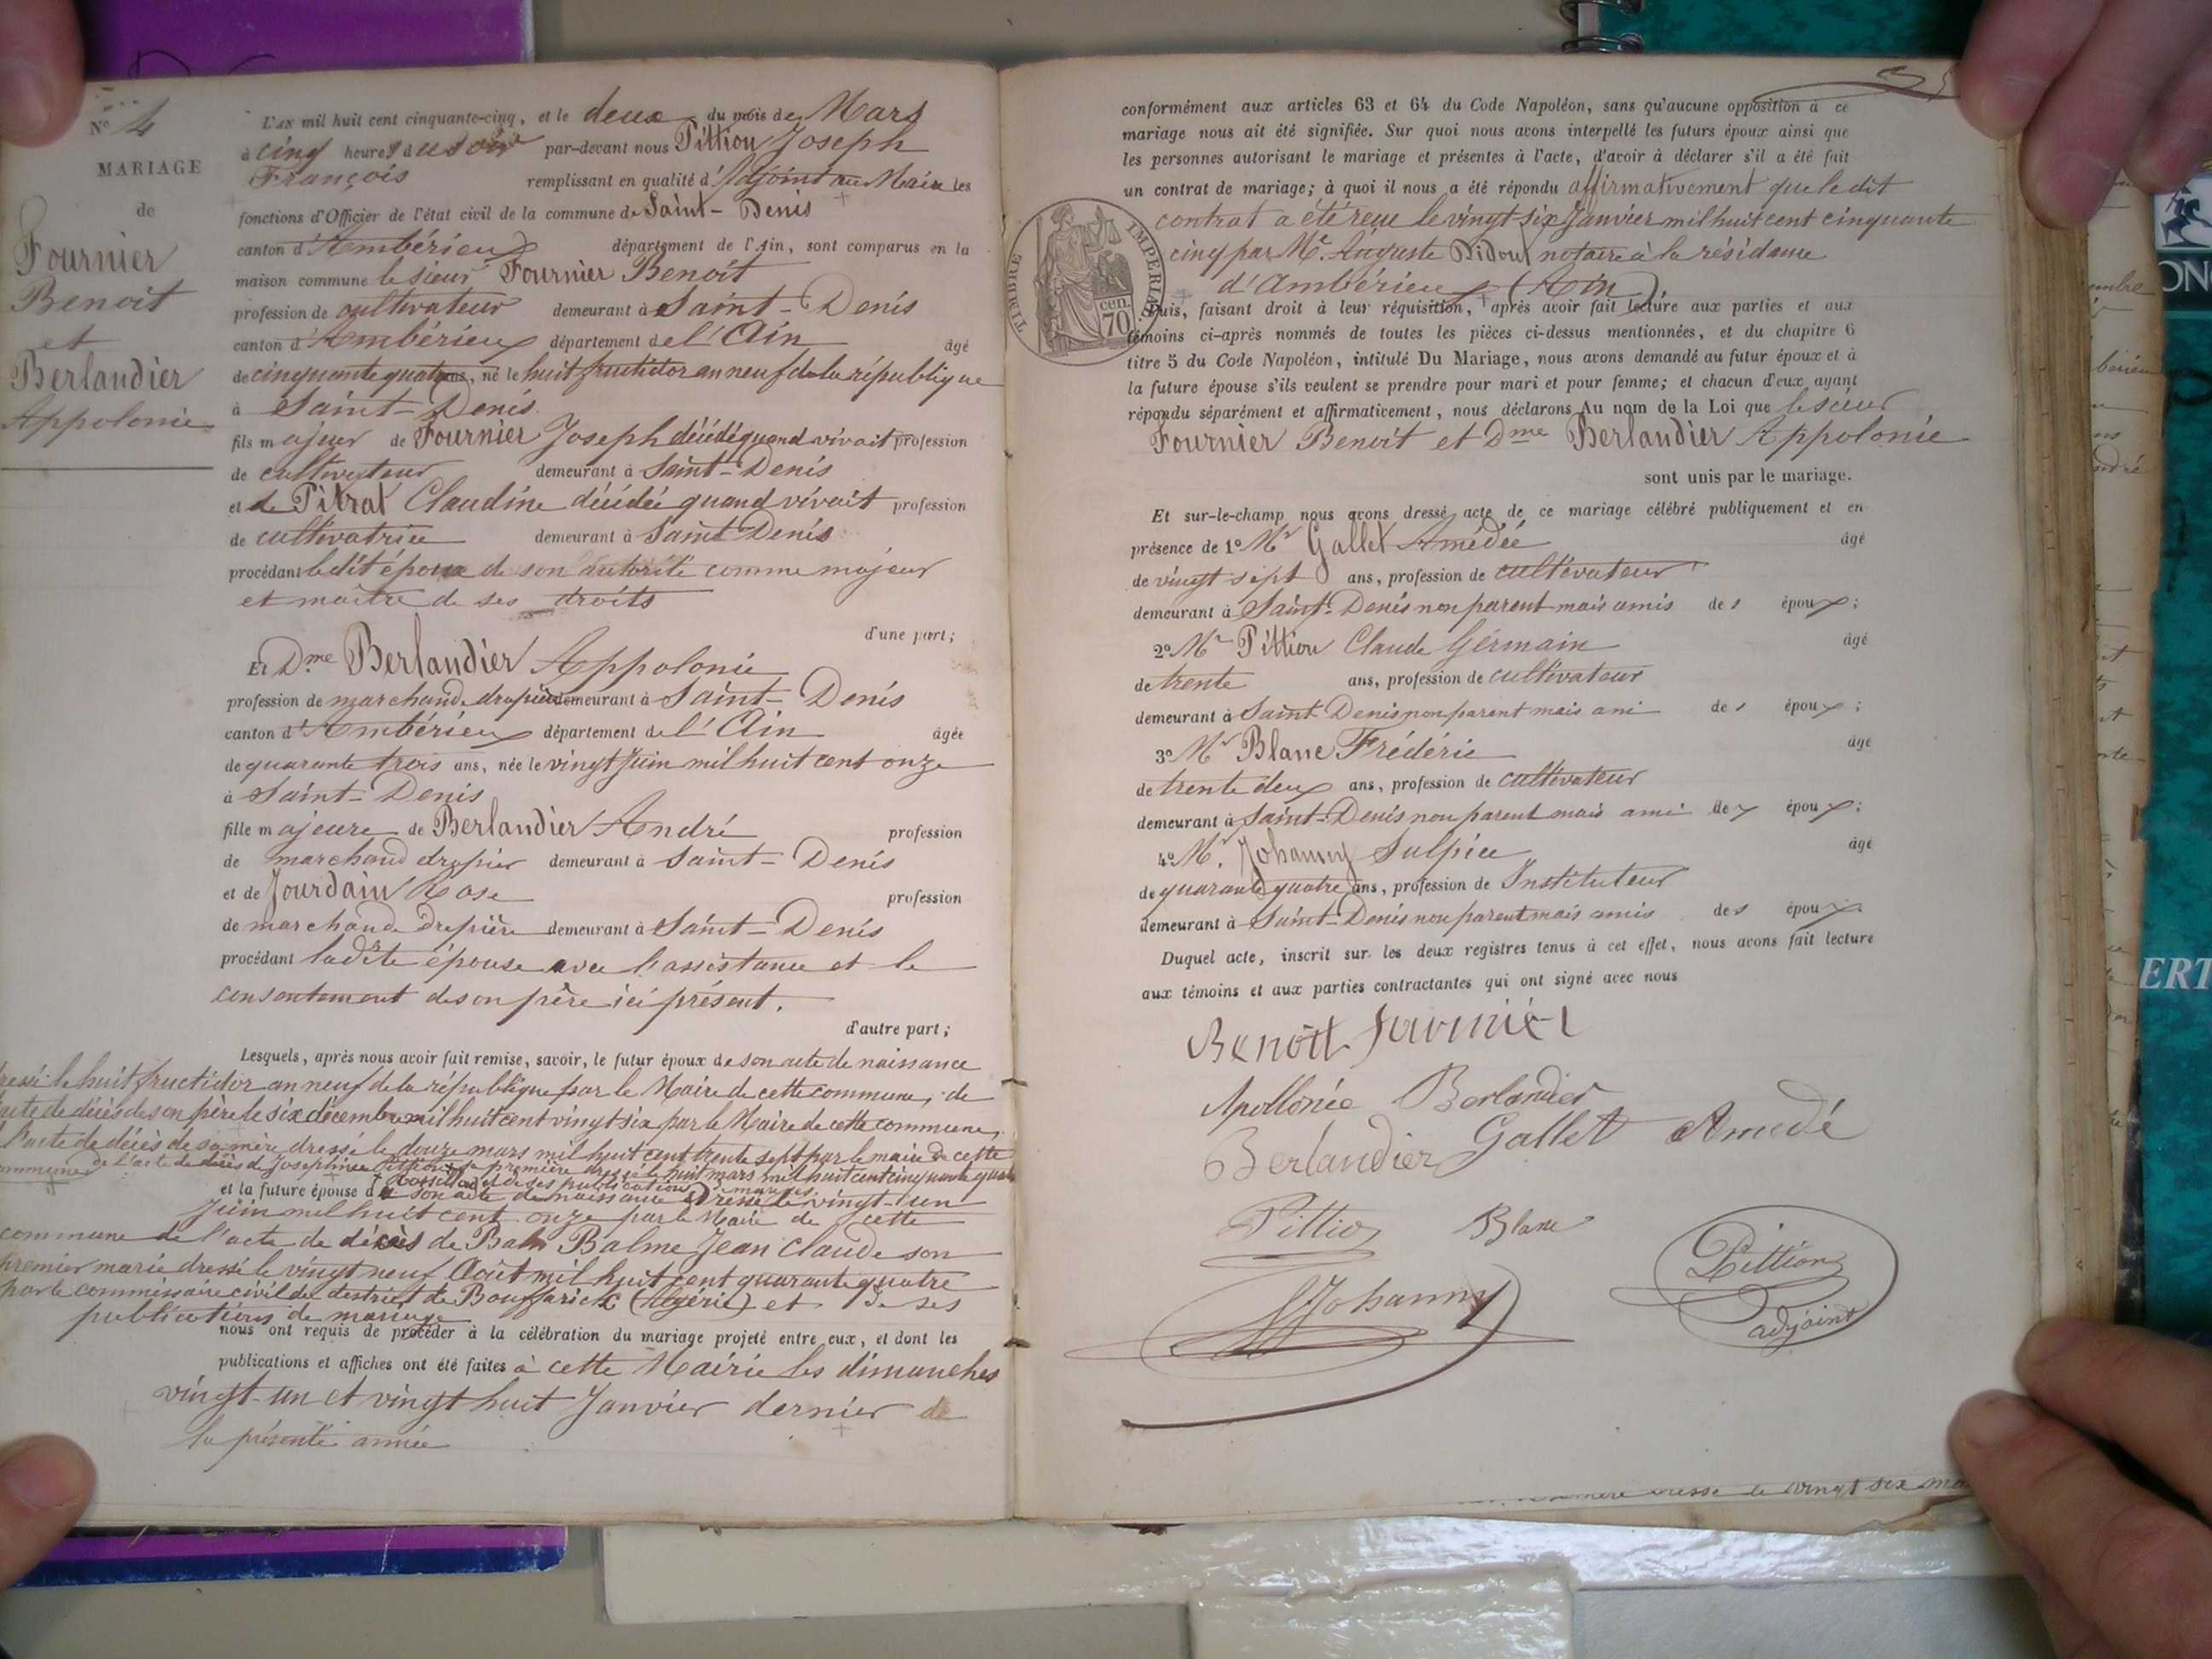 N° 4
MARIAGE
de
Fournier
Benoit
et
Berlandier
Appolonie
L'AN mil huit cent cinquante-cinq, et le deux du mois de Mars
à cinq heures du soir par-devant nous Pittion Joseph
François remplissant en qualité d'Adjoint au Maire les
fonctions d'Officier de l'état civil de la commune de Saint-Denis
canton d'Ambérieux département de l'Ain, sont comparus en la
maison commune le sieur Fournier Benoit
profession de cultivateur demeurant à Saint-Denis
canton d'Ambérieux département de l'Ain âgé
de cinquante quatre ans, né le huit fructidor an neuf de la république
à Saint-Denis
fils majeur de Fournier Joseph décédé quand vivait profession
de cultivateur demeurant à Saint-Denis
et de Pitrat Claudine décédée quand vivait profession
de cultivatrice demeurant à Saint Denis
procédant ledit époux de son autorité comme majeur
et maître de ses droits
d'une part;
Et Dme Berlandier Appolonie
profession de marchande drapière demeurant à Saint-Denis
canton d'Ambérieux département de l'Ain âgée
de quarante trois ans, née le vingt Juin mil huit cent onze
à Saint-Denis
fille majeure de Berlandier André profession
de marchand drapier demeurant à Saint-Denis
et de Jourdain Rose profession
de marchande drapière demeurant à Saint-Denis
procédant ladite épouse avec l'assistance et le
consentement de son père ici présent.
d'autre part;
Lesquels, après nous avoir fait remise, savoir, le futur époux de son acte de naissance
dressé le huit fructidor an neuf de la république par le Maire de cette commune, de
l'acte de décès de son père le six décembre mil huit cent vingt six par le Maire de cette commune,
l'acte de décès de sa mère dressé le douze mars mil huit cent trente sept par le maire de cette
commune de l'acte de décès de Josephine Pittion sa première dressé le huit mars mil huit cent cinquante quatre
et de ses publications de mariage
et la future épouse de son acte de naissance dressé le vingt-un
Juin mil huit cent onze par le Maire de cette
commune de l'acte de décès de Balme Jean Claude son
premier marie dressé le vingt neuf Août mil huit cent quarante quatre
par le commissaire civil du district de Bouffarick (Algérie) et de ses
publications de mariage
nous ont requis de procéder à la célébration du mariage projeté entre eux, et dont les
publications et affiches ont été faites à cette Mairie les dimanches
vingt-un et vingt huit Janvier dernier de
la présente année
conformément aux articles 63 et 64 du Code Napoléon, sans qu'aucune opposition à ce
mariage nous ait été signifiée. Sur quoi nous avons interpellé les futurs époux ainsi que
les personnes autorisant le mariage et présentes à l'acte, d'avoir à déclarer s'il a été fait
un contrat de mariage; à quoi il nous a été répondu affirmativement que le dit
contrat a été reçu le vingt six Janvier mil huit cent cinquante
cinq par Me. Auguste Didout notaire à la résidance
d'Ambérieux (Ain)
TIMBRE IMPERIAL
70 cen.
Puis, faisant droit à leur réquisition, après avoir fait lecture aux parties et aux
témoins ci-après nommés de toutes les pièces ci-dessus mentionnées, et du chapitre 6
titre 5 du Code Napoléon, intitulé Du Mariage, nous avons demandé au futur époux et à
la future épouse s'ils veulent se prendre pour mari et pour femme; et chacun d'eux ayant
répondu séparément et affirmativement, nous déclarons Au nom de la Loi que le sieur
Fournier Benoit et Dme Berlandier Appolonie
sont unis par le mariage.
Et sur-le-champ nous avons dressé acte de ce mariage célébré publiquement et en
présence de 1° Mr Gallet Amédée âgé
de vingt sept ans, profession de cultivateur
demeurant à Saint-Denis non parent mais amis des époux;
2° Mr Pittion Claude Germain âgé
de trente ans, profession de cultivateur
demeurant à Saint Denis non parent mais ami des époux;
3° Mr Blanc Frédéric âgé
de trente deux ans, profession de cultivateur
demeurant à Saint-Denis non parent mais ami des époux;
4° Mr. Johanny Sulpice âgé
de quarante quatre ans, profession de Instituteur
demeurant à Saint-Denis non parent mais amis des époux.
Duquel acte, inscrit sur les deux registres tenus à cet effet, nous avons fait lecture
aux témoins et aux parties contractantes qui ont signé avec nous
Benoit Fournier
Apollonie Berlandier
Berlandier Gallet Amedé
Pittion Blanc
Pittion
adjoint
SJohanny
dressé le vingt six
ERT